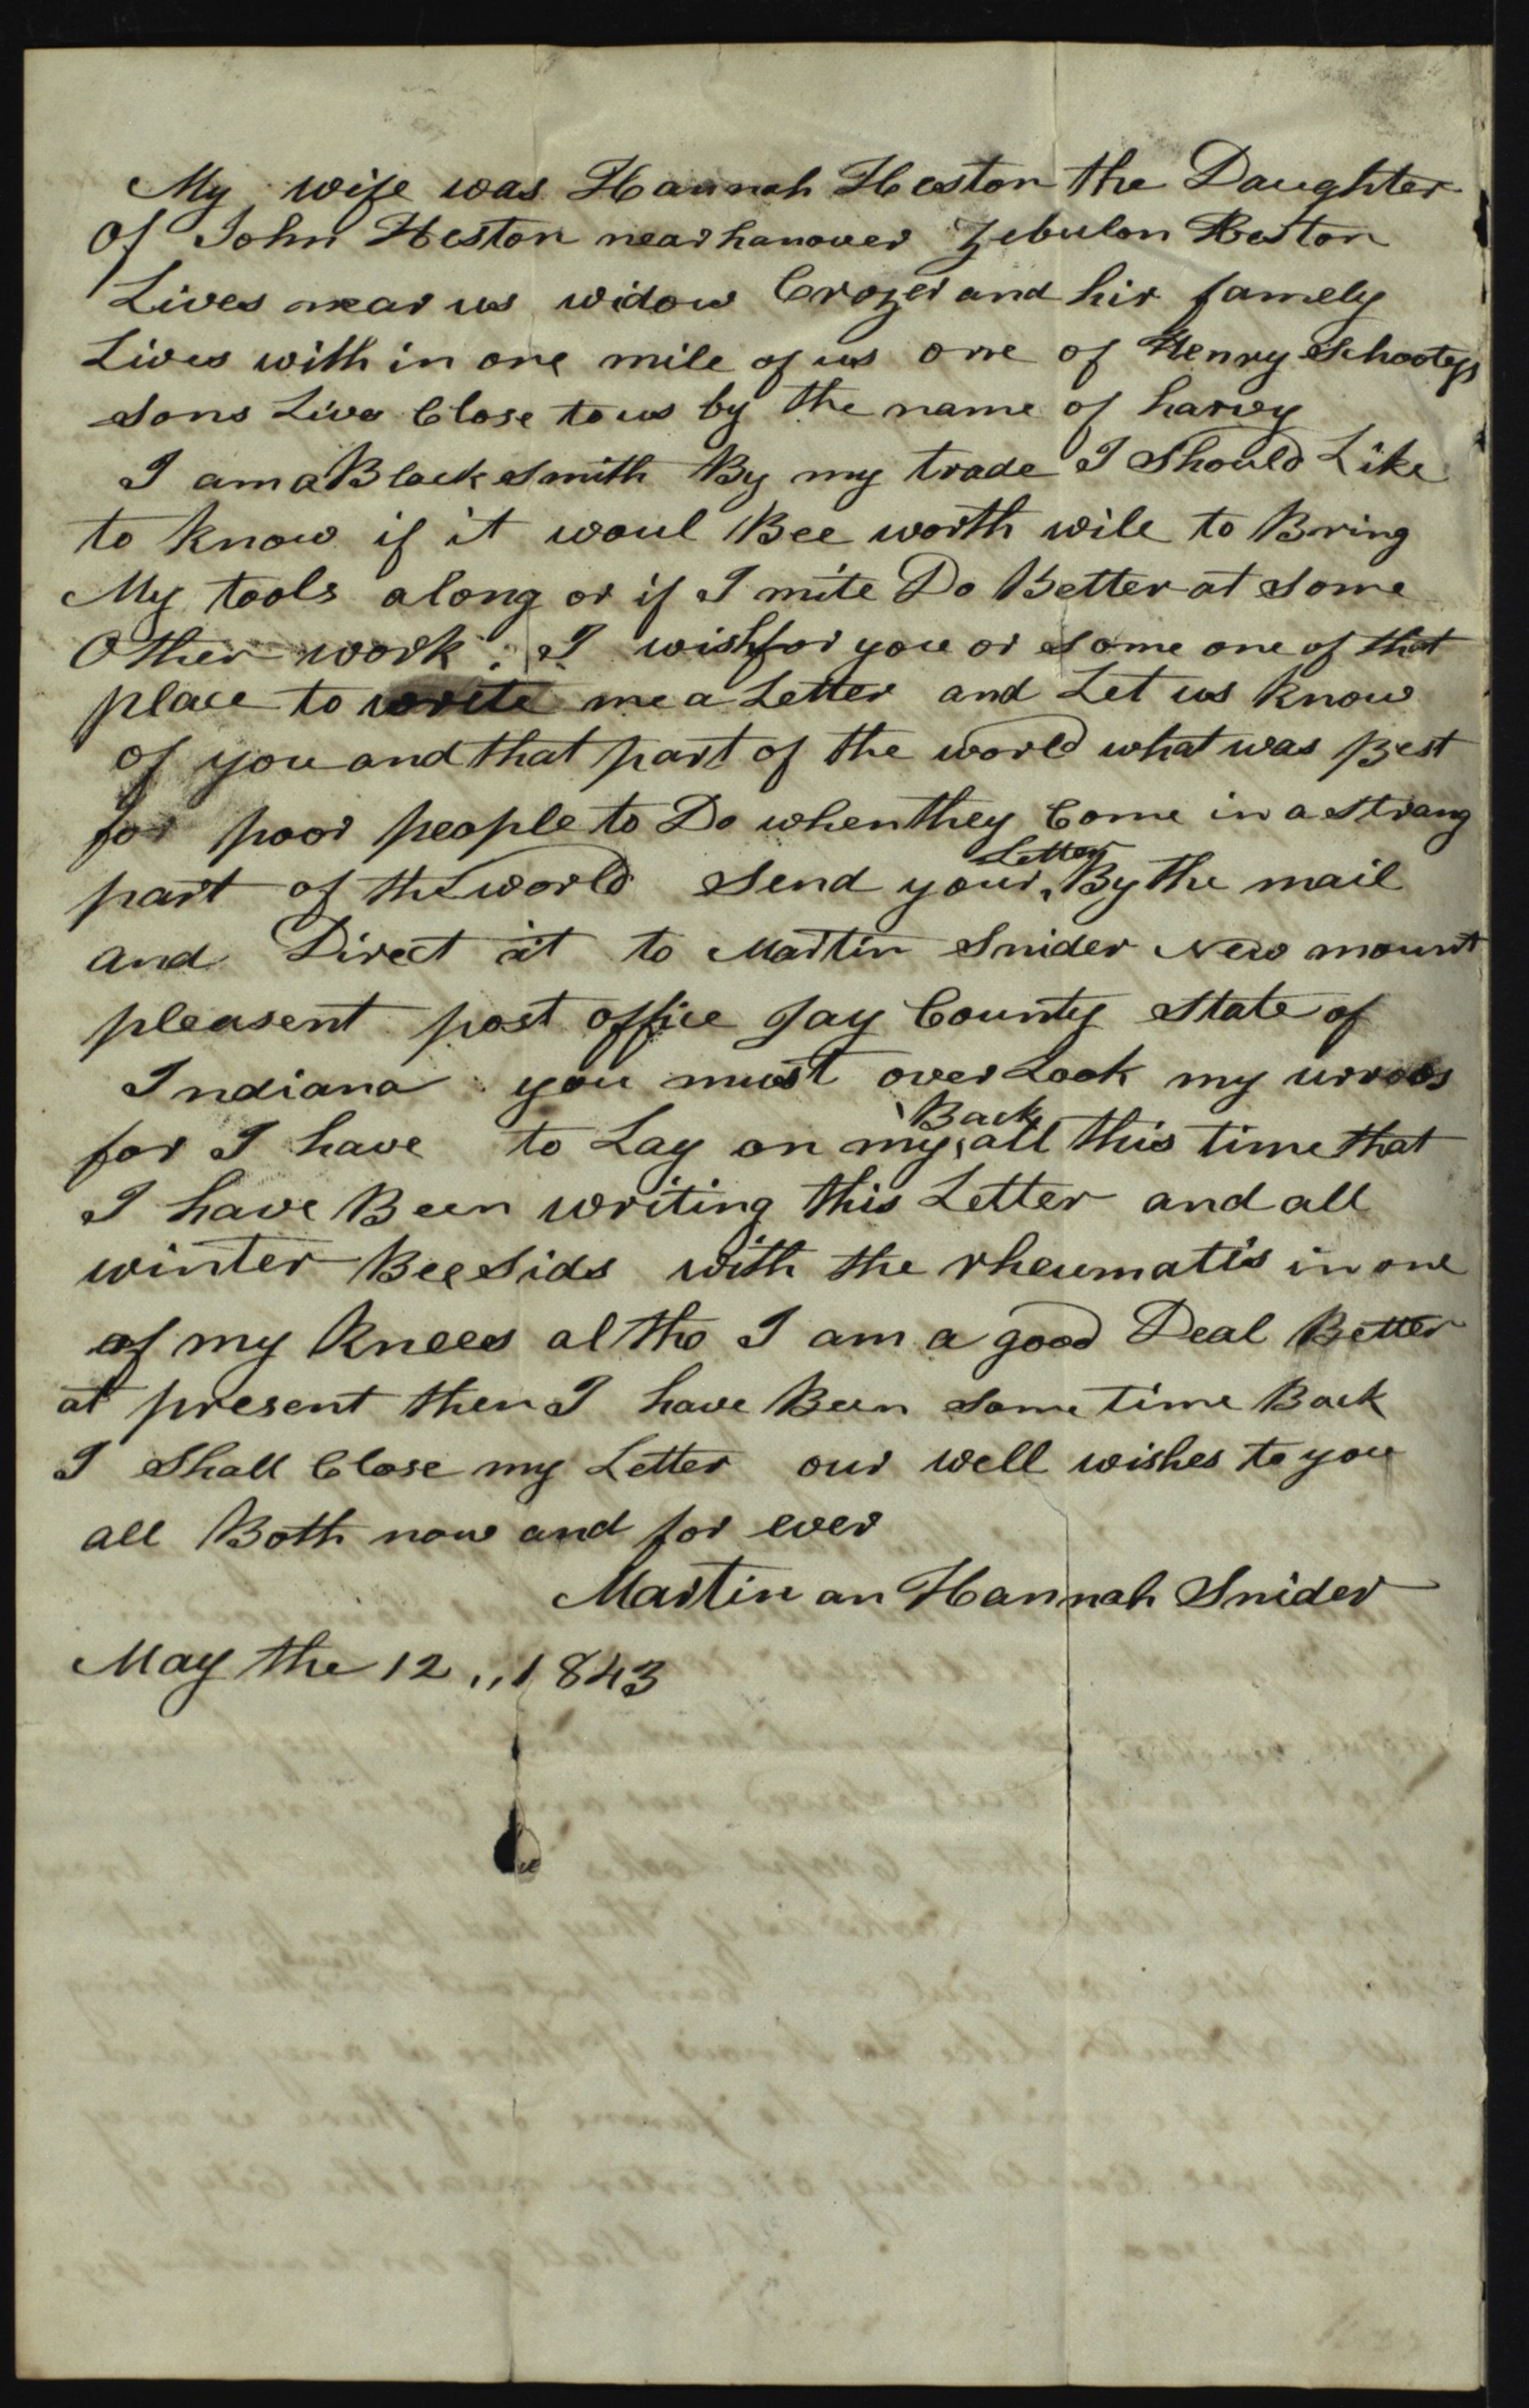 My wife was Hannah Heston the Daughter
Of John Heston near hanover Zebulon Heston
Lives near us widow Crozer and hir famely
Lives with in one mile of us one of Henry Schooleys
sons Live Close to us by the name of harvy
I am a Black smith By my trade I Should Like
to know if it woul Bee worth wile to Bring
My tools along or if I mite Do Better at some
Other work ; I wish for you or some one of that
place to write me a Letter and Let us know
of you and that part of the world what was Best
for poor people to Do when they Come in a strang
part of the world Send your Letter By the mail
and Direct it to Martin Snider New mount
pleasent post office Jay County State of
Indiana you must over Look my urrors
for I have to Lay on my Back all this time that
I have Been writing this Letter and all
winter Bee Sids with the rheumatis in one
of my Knees al tho I am a good Deal Better
at present then I have Been some time Back
I Shall Close my Letter our well wishes to you
all Both now and for ever
Martin an Hannah Snider
May the 12 ,, 1843